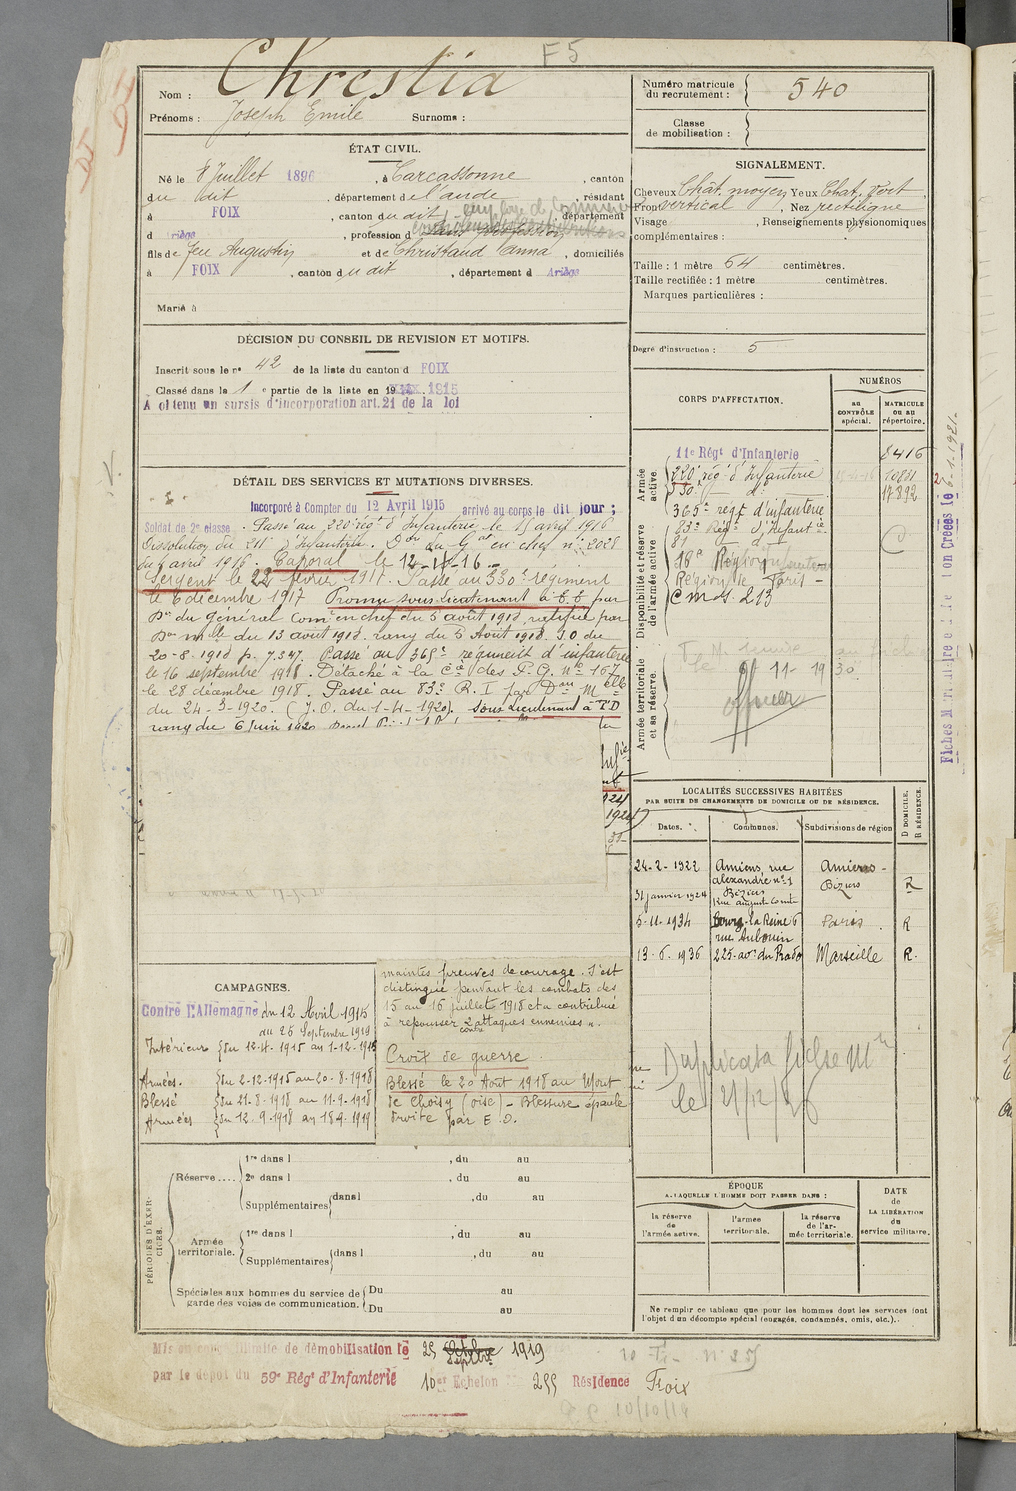 F5
Nom : Chrestia
Prénoms : Joseph Emile Surnoms :
Numéro matricule du recrutement : 540
Classe de mobilisation :
ÉTAT CIVIL.
Né le 8 Juillet 1896, à Carcassonne, canton
du dit, département de l'aude, résidant
à FOIX, canton du dit, département
d Ariège, profession d
fils de feu Augustin et de Christaud Anna, domiciliés
à FOIX, canton du dit, département d Ariège
Marié à
SIGNALEMENT.
Cheveux Chât. moyen Yeux Chat. vert
Front vertical, Nez rectiligne
Visage, Renseignements physionomiques
complémentaires :
Taille : 1 mètre 64 centimètres.
Taille rectifiée : 1 mètre centimètres.
Marques particulières :
Degré d'instruction : 5
DÉCISION DU CONSEIL DE REVISION ET MOTIFS.
Inscrit sous le n° 42 de la liste du canton d FOIX
Classé dans la 1e partie de la liste en 19 1915
A obtenu un sursis d'incorporation art. 21 de la loi
DÉTAIL DES SERVICES ET MUTATIONS DIVERSES.
Incorporé à Compter du 12 Avril 1915 arrivé au corps le dit jour ;
Soldat de 2e classe. Passé au 220e régt d'Infanterie le 15 avril 1916
Dissolution du 211 d'Infanterie. Don du Gal en chef n° 2028
du 6 avril 1916. Caporal le 12-11-16
Sergent le 22 février 1917. Passé au 330e régiment
le 6 décembre 1917 Promu sous-lieutenant à T.T par
Don du général Comt en chef du 5 août 1918, ratifié par
Don mlle du 13 août 1918. rang du 5 Août 1918. J.O du
20-8-1918 p. 7.347. Passé au 365e régiment d'infanterie
le 16 septembre 1918. Détaché à la Cie des P.G. n° 167
le 28 décembre 1918. Passé au 83e R.I par Don Melle
du 24-3-1920. (J.O. du 1-4-1920). Sous Lieutenant à T.D
rang du 6 Juin 1920
CORPS D'AFFECTATION.
NUMÉROS
au CONTRÔLE spécial.
MATRICULE ou au répertoire.
Armée active.
11e Régt d'Infanterie 8416
220e rég. d'Infanterie 10881
330e d° 17892
365e régt d'infanterie
Disponibilité et réserve de l'armée active.
83e Régt d'Infantie
81 d°
18e Région
Région de Paris
Cmdt 213
Armée territoriale et sa réserve.
le 9/11 1930
officier
Fiches créées le 6.1.1921.
LOCALITÉS SUCCESSIVES HABITÉES
PAR SUITE DE CHANGEMENTS DE DOMICILE OU DE RÉSIDENCE.
Dates. Communes. Subdivisions de région D DOMICILE. R RÉSIDENCE.
24-2-1922 Amiens, rue alexandre n° 1 Amiens
31 janvier 1924 Béziers Rue august Comte Béziers R
5-11-1934 Bourg-la-Reine 6 rue Aubouin Paris R
13-6-1936 225 av. du Prado Marseille R.
Duplicata fiche Mle
le 21/12/
CAMPAGNES.
Contre l'Allemagne du 12 Avril 1915
au 25 Septembre 1919
Intérieur du 12-4-1915 au 1-12-1915
Armées. du 2-12-1915 au 20-8-1918
Blessé du 21-8-1918 au 11-9-1918
Armées du 12-9-1918 au 18-4-1919
maintes preuves de courage. S'est
distingué pendant les combats des
15 au 16 juillet 1918 et a contribué
à repousser 2 contre attaques ennemies ».
Croix de guerre
Blessé le 20 Aout 1918 au Mont
de Choisy (oise) - Blessure épaule
droite par E.O.
PÉRIODES D'EXERCICES.
Réserve.... 1re dans l, du au
2e dans l, du au
Supplémentaires dans l, du au
Armée territoriale. 1re dans l, du au
Supplémentaires dans l, du au
Spéciales aux hommes du service de garde des voies de communication. Du au
Du au
ÉPOQUE
A LAQUELLE L'HOMME DOIT PASSER DANS :
la réserve de l'armée active.
l'armée territoriale.
la réserve de l'armée territoriale.
DATE de LA LIBÉRATION du service militaire.
Ne remplir ce tableau que pour les hommes dont les services font
l'objet d'un décompte spécial (engagés, condamnés, omis, etc.).
Mis en congé illimité de démobilisation le 25 Septbre 1919
par le dépôt du 59e Régt d'Infanterie 10er Echelon N° 255 Résidence Foix